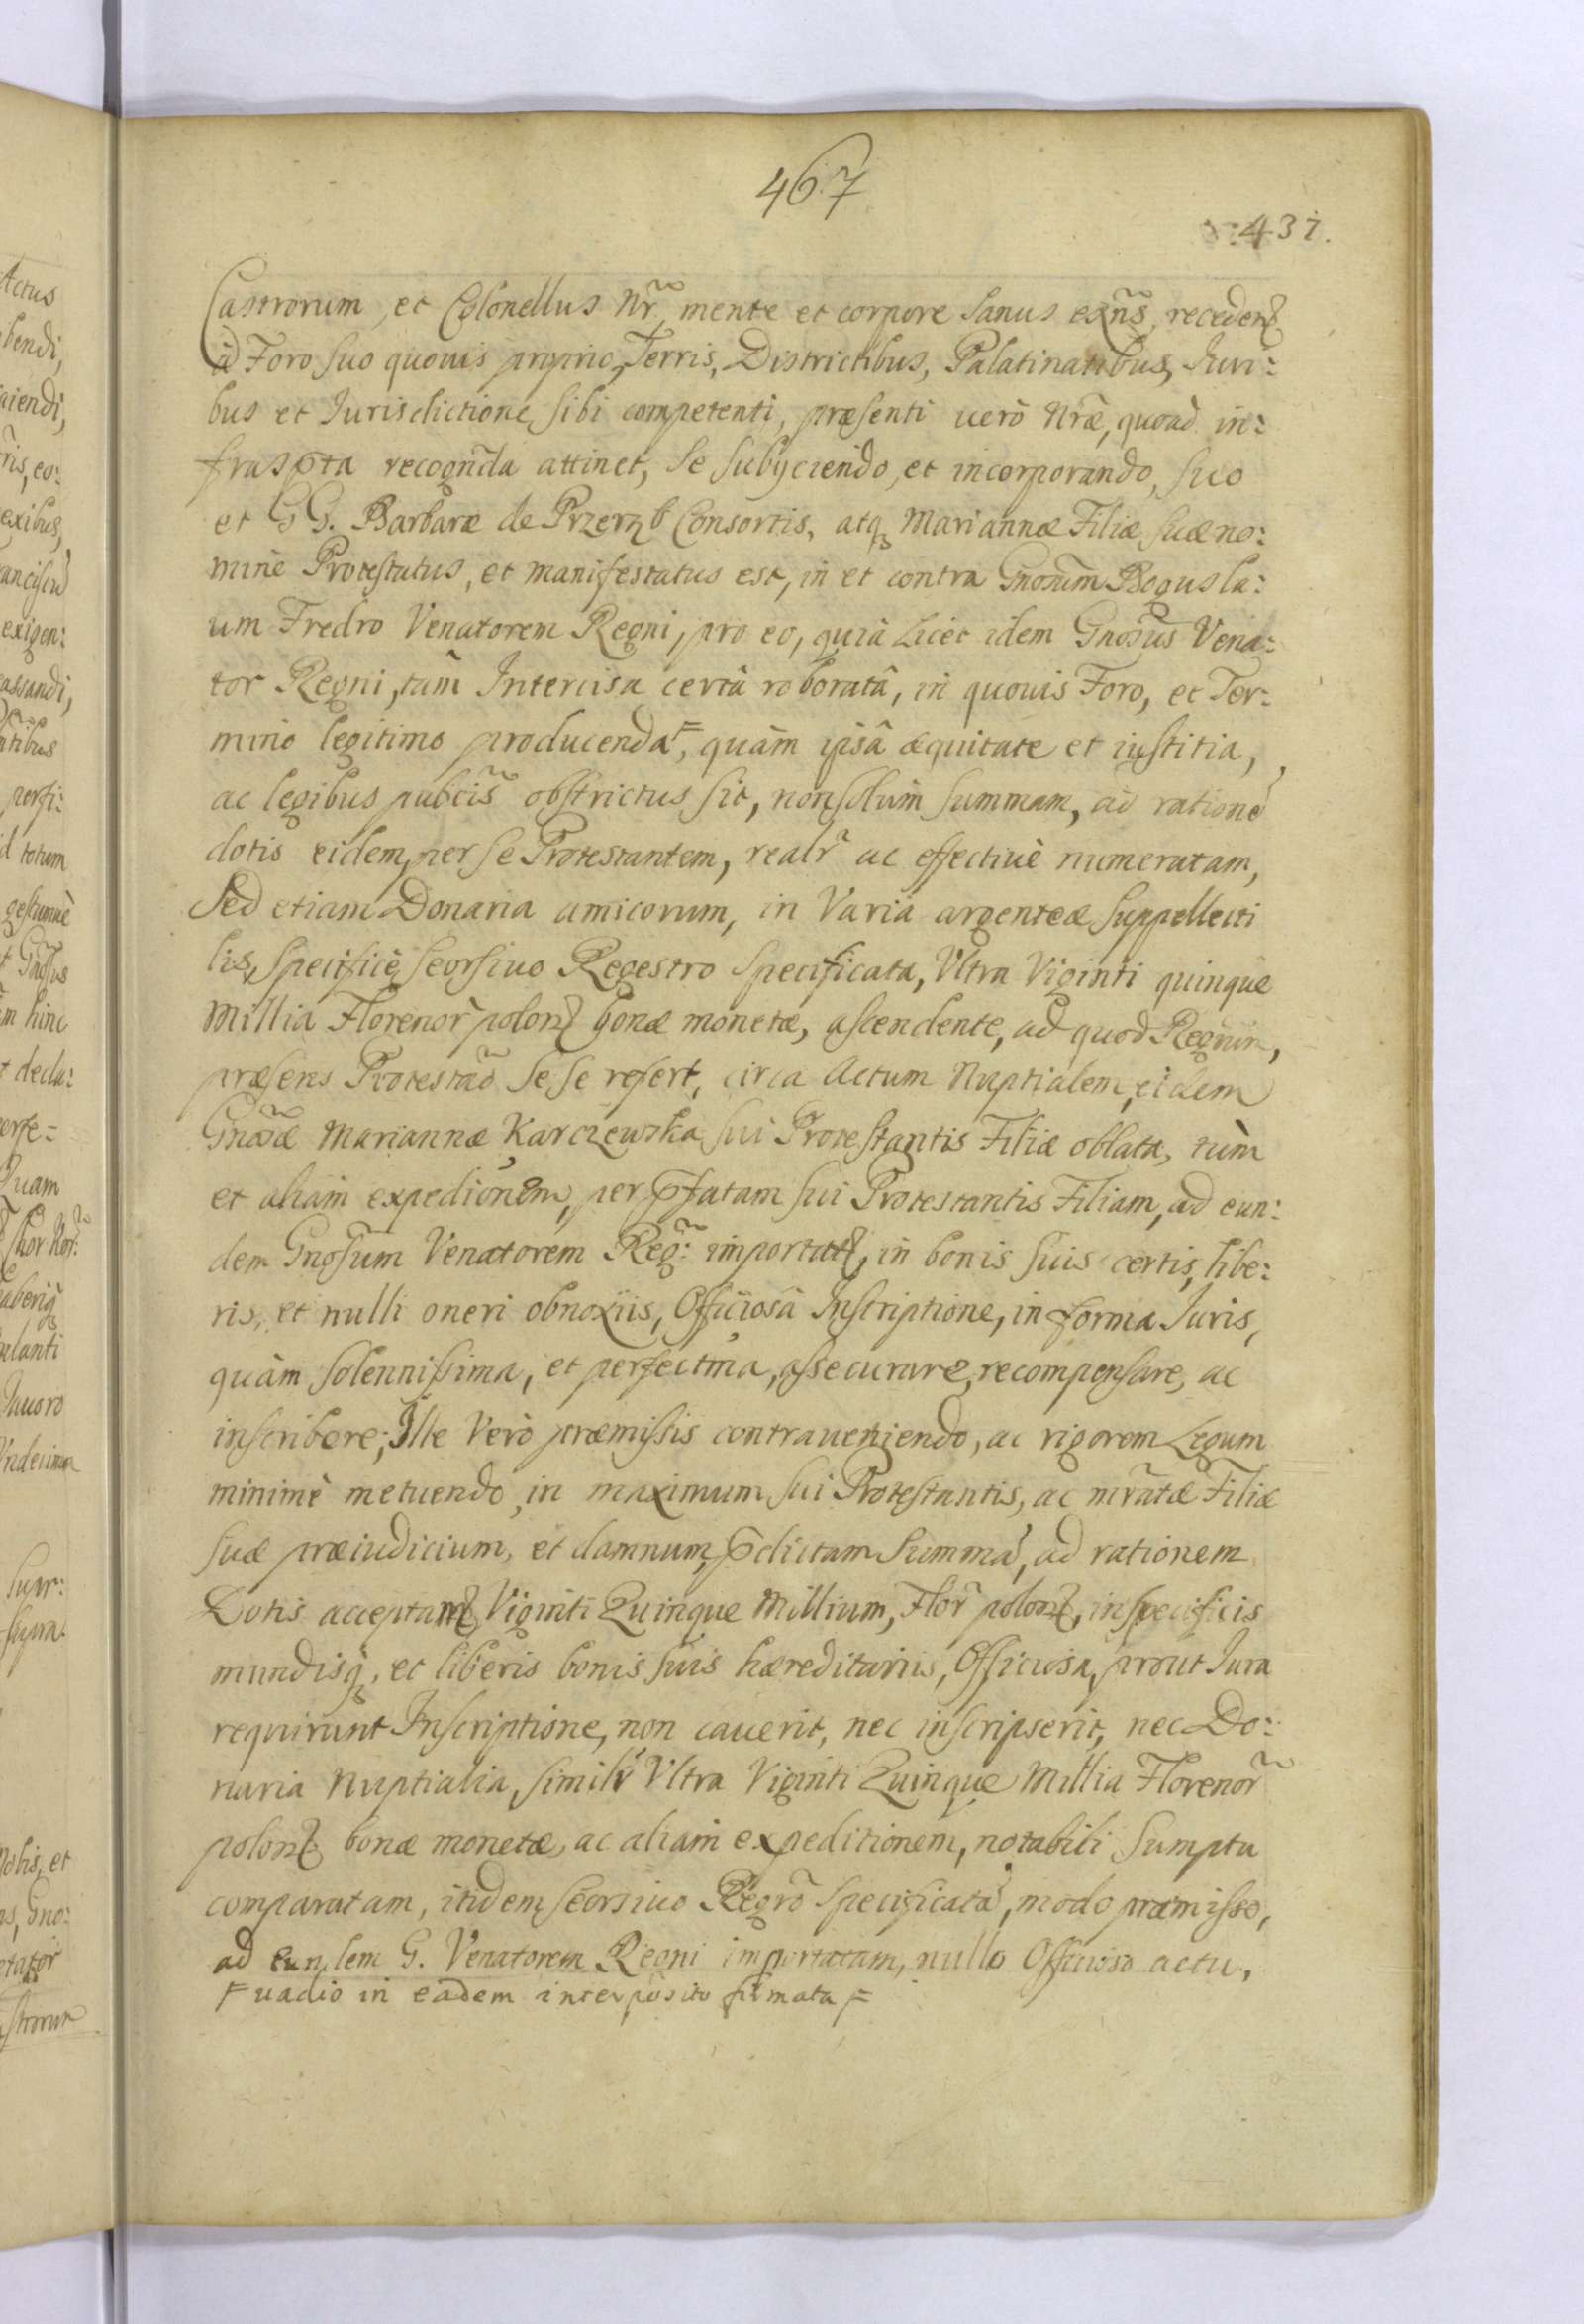 467
437.
Castrorum, et Colonellus Nr̃, mente et corpore sanus exñs, recedens
à Foro suo quouis proprio, Terris, Districtibus, Palatinatibus, Iuri:
bus et Iurisdictione sibi competenti, præsenti uerò Nræ̃, quoad in:
frasp̃ta recogñda attinet, se subÿciendo, et incorporando, suo
et GG. Barbaræ de Consortis, atq Mariannæ Filiæ suæ no:
mine Protestatus, et manifestatus est, in et contra Gnosum Bogusla:
um Fredro Venatorem Regni, pro eo, quià licèt idem Gnosus Vena:
tor Regni, tam̃ Intercisa certâ roboratâ, in quouis Foro, et Ter:
mino legitimo producenda⌜=, quàm ipsâ æquitate et iustitia,
ac legibus pubcis̃ obstrictus sit, nonsolùm summam, ad rationẽ
dotis eidem, per se Protestantem, realr̃ ac effectiuè numeratam,
sed etiam Donaria amicorum, in Varia argenteæ suppellecti
lis, specificè, seorsiuo Regestro specificata, Vltra Viginti quinque
Millia Florenor̃ polon bonæ monetæ, ascendente, ad quod Regrum,
præsens Protestaõ se se refert, circa Actum Nuptialem, eidem
Gnosæ Mariannæ Karczewska sui Protestantis Filiæ oblata, tùm
et aliam expedionem, per p̃fatam sui Protestantis Filiam, ad eun:
dem Gnosum Venatorem Reg̃: importat, in bonis suis certis, libe:
ris, et nulli oneri obnoxiis, Officiosâ Inscriptione, in forma Iuris,
quàm solennissima, et perfectma, assecurare, recompensare, ac
inscribere; Ille Verò præmissis contraueniendo, ac rigorem Legum
minimè metuendo, in maximum sui Protestantis, ac mr̃atæ Filiæ
suæ præiudicium, et damnum, p̃dictam summã, ad rationem
Dotis acceptam Viginti Quinque Millium, Flor̃ polon, in specificis
mundisq, et liberis bonis suis hæreditariis, Officiosa, prout Iura
requirunt Inscriptione, non cauerit, nec inscripserit, nec Do:
naria Nuptialia, similr̃ Vltra Viginti Quinque Millia Florenor̃
polon bonæ monetæ, ac aliam expeditionem, notabili sumptu
comparatam, itidem seorsiuo Regrõ specificatã, modo præmisso,
ad eundem G. Venatorem Regni importatam, nullo Officioso actu,
⌜ uadio in eadem interposito firmata ⌜=